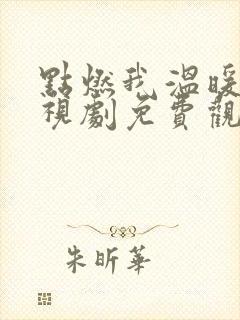 點燃我溫暖
視劇免費觀
朱昕華